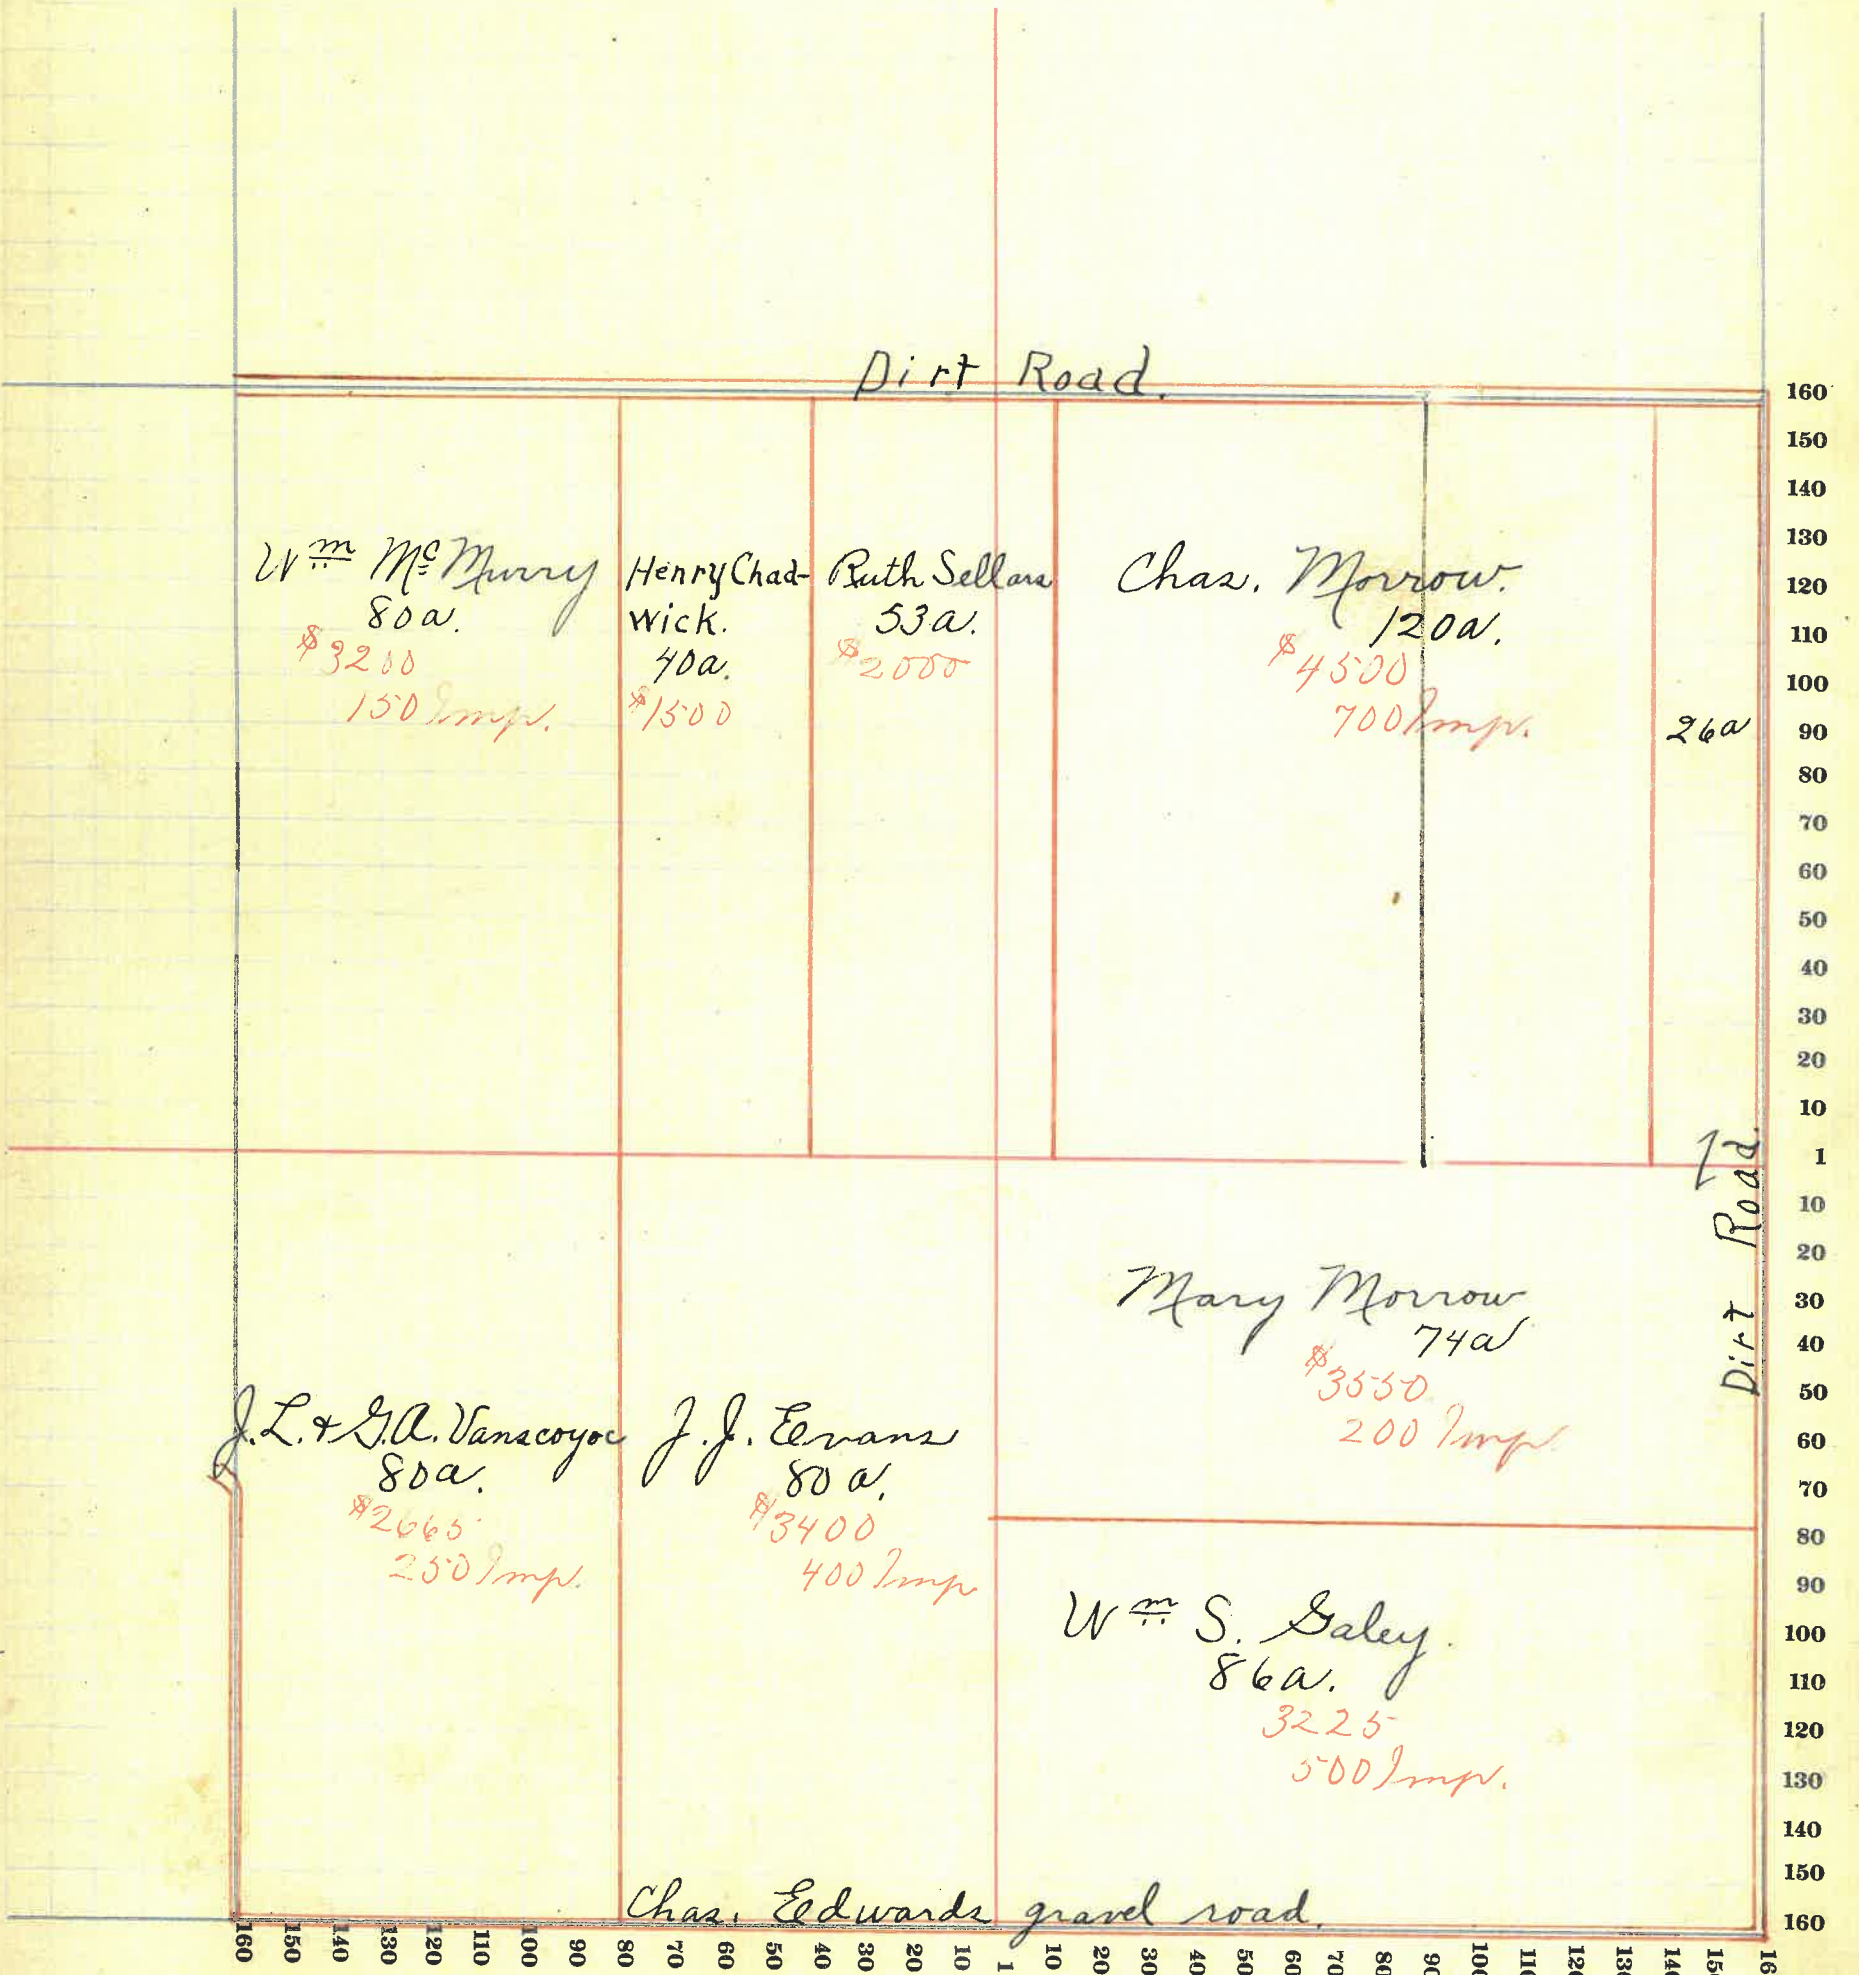 Dirt Road.
Wm Mc Murry
80a.
$3200
150 Imp.
Henry Chad-
wick.
40a.
$1500
Ruth Sellars
53a.
$2000
Chas. Morrow.
120a.
$4500
700 Imp.
26a
Dirt Road.
Mary Morrow
74a
$3550
200 Imp
J.L. & G.A. Vanscoyoc
80a.
$2665
250 Imp.
J.J. Evans
80 a.
$3400
400 Imp
Wm S. Galey.
86a.
3225
500 Imp.
Chas. Edwards gravel road.
160
150
140
130
120
110
100
90
80
70
60
50
40
30
20
10
1
10
20
30
40
50
60
70
80
90
100
110
120
130
140
150
160
160 150 140 130 120 110 100 90 80 70 60 50 40 30 20 10 1 10 20 30 40 50 60 70 80 90 100 110 120 130 140 150 16